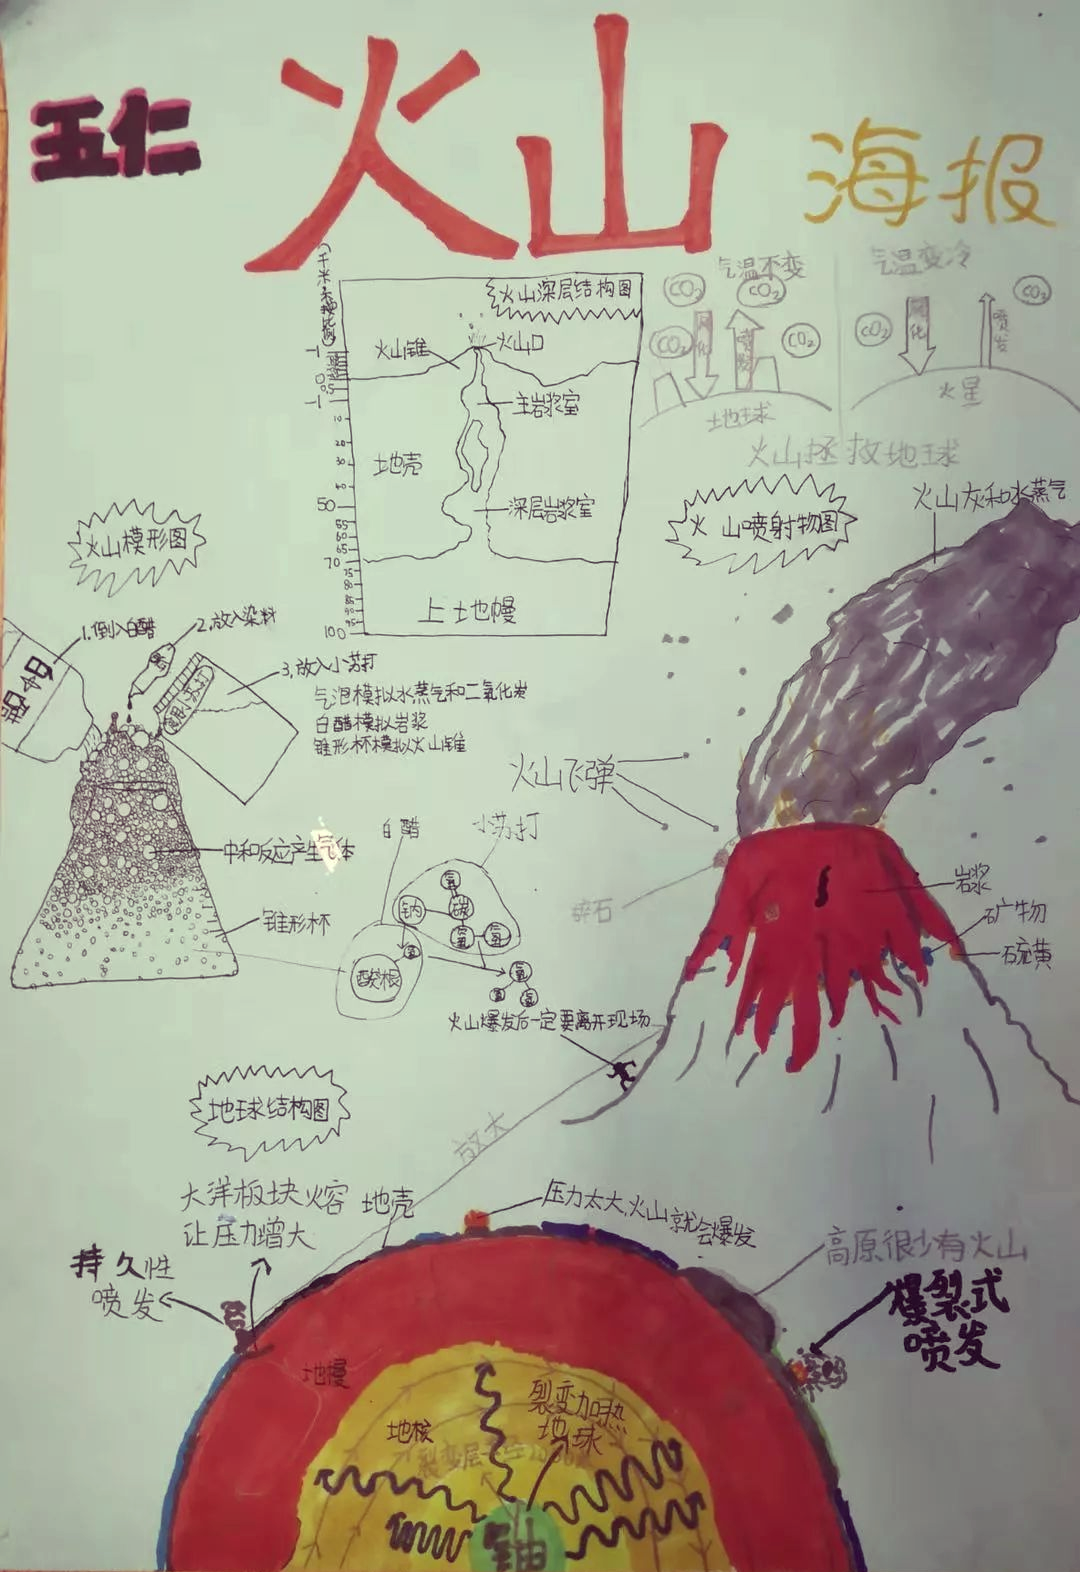 五仁
火山
海报
火山深层结构图
火山锥
火山口
主岩浆室
地壳
深层岩浆室
上地幔
-1
0
0.5
-1
10
20
30
40
50
55
60
65
70
75
80
85
90
95
100
气温不变
CO₂
CO₂
CO₂
CO₂
固化
喷发
地球
气温变冷
CO₂
CO₂
固化
喷发
火星
火山拯救地球
火山模形图
1.倒入白醋
2.放入染料
3.放入小苏打
白醋
食用小苏打
气泡模拟水蒸气和二氧化炭
白醋模拟岩浆
锥形杯模拟火山锥
中和反应产生气体
锥形杯
白醋
小苏打
氧
钠
碳
氧
氢
酸根
氢
氧
氢
火山喷射物图
火山灰和水蒸气
火山飞弹
碎石
岩浆
矿产物
硫黄
火山爆发后一定要离开现场
放大
地球结构图
大洋板块火容
让压力增大
地壳
持久性
喷发
压力太大,火山就会爆发
高原很少有火山
爆裂式
喷发
地幔
地核
裂变加热
地球
裂变层
铀